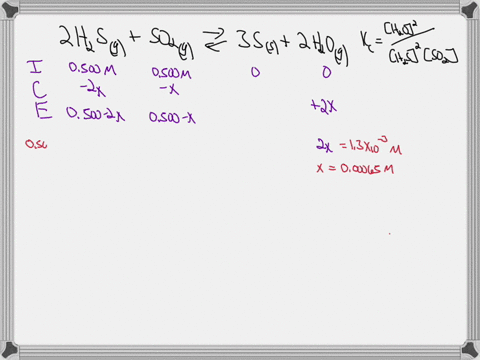 2H₂S(g) + SO₂(g) ⇌ 3S(s) + 2H₂O(g) Kc = [H₂O]² / [H₂S]²[SO₂]
I 0.500M 0.500M 0 0
C -2x -x
+2x
E 0.500-2x 0.500-x
0.50
2x = 1.3x10⁻³ M
x = 0.00065 M